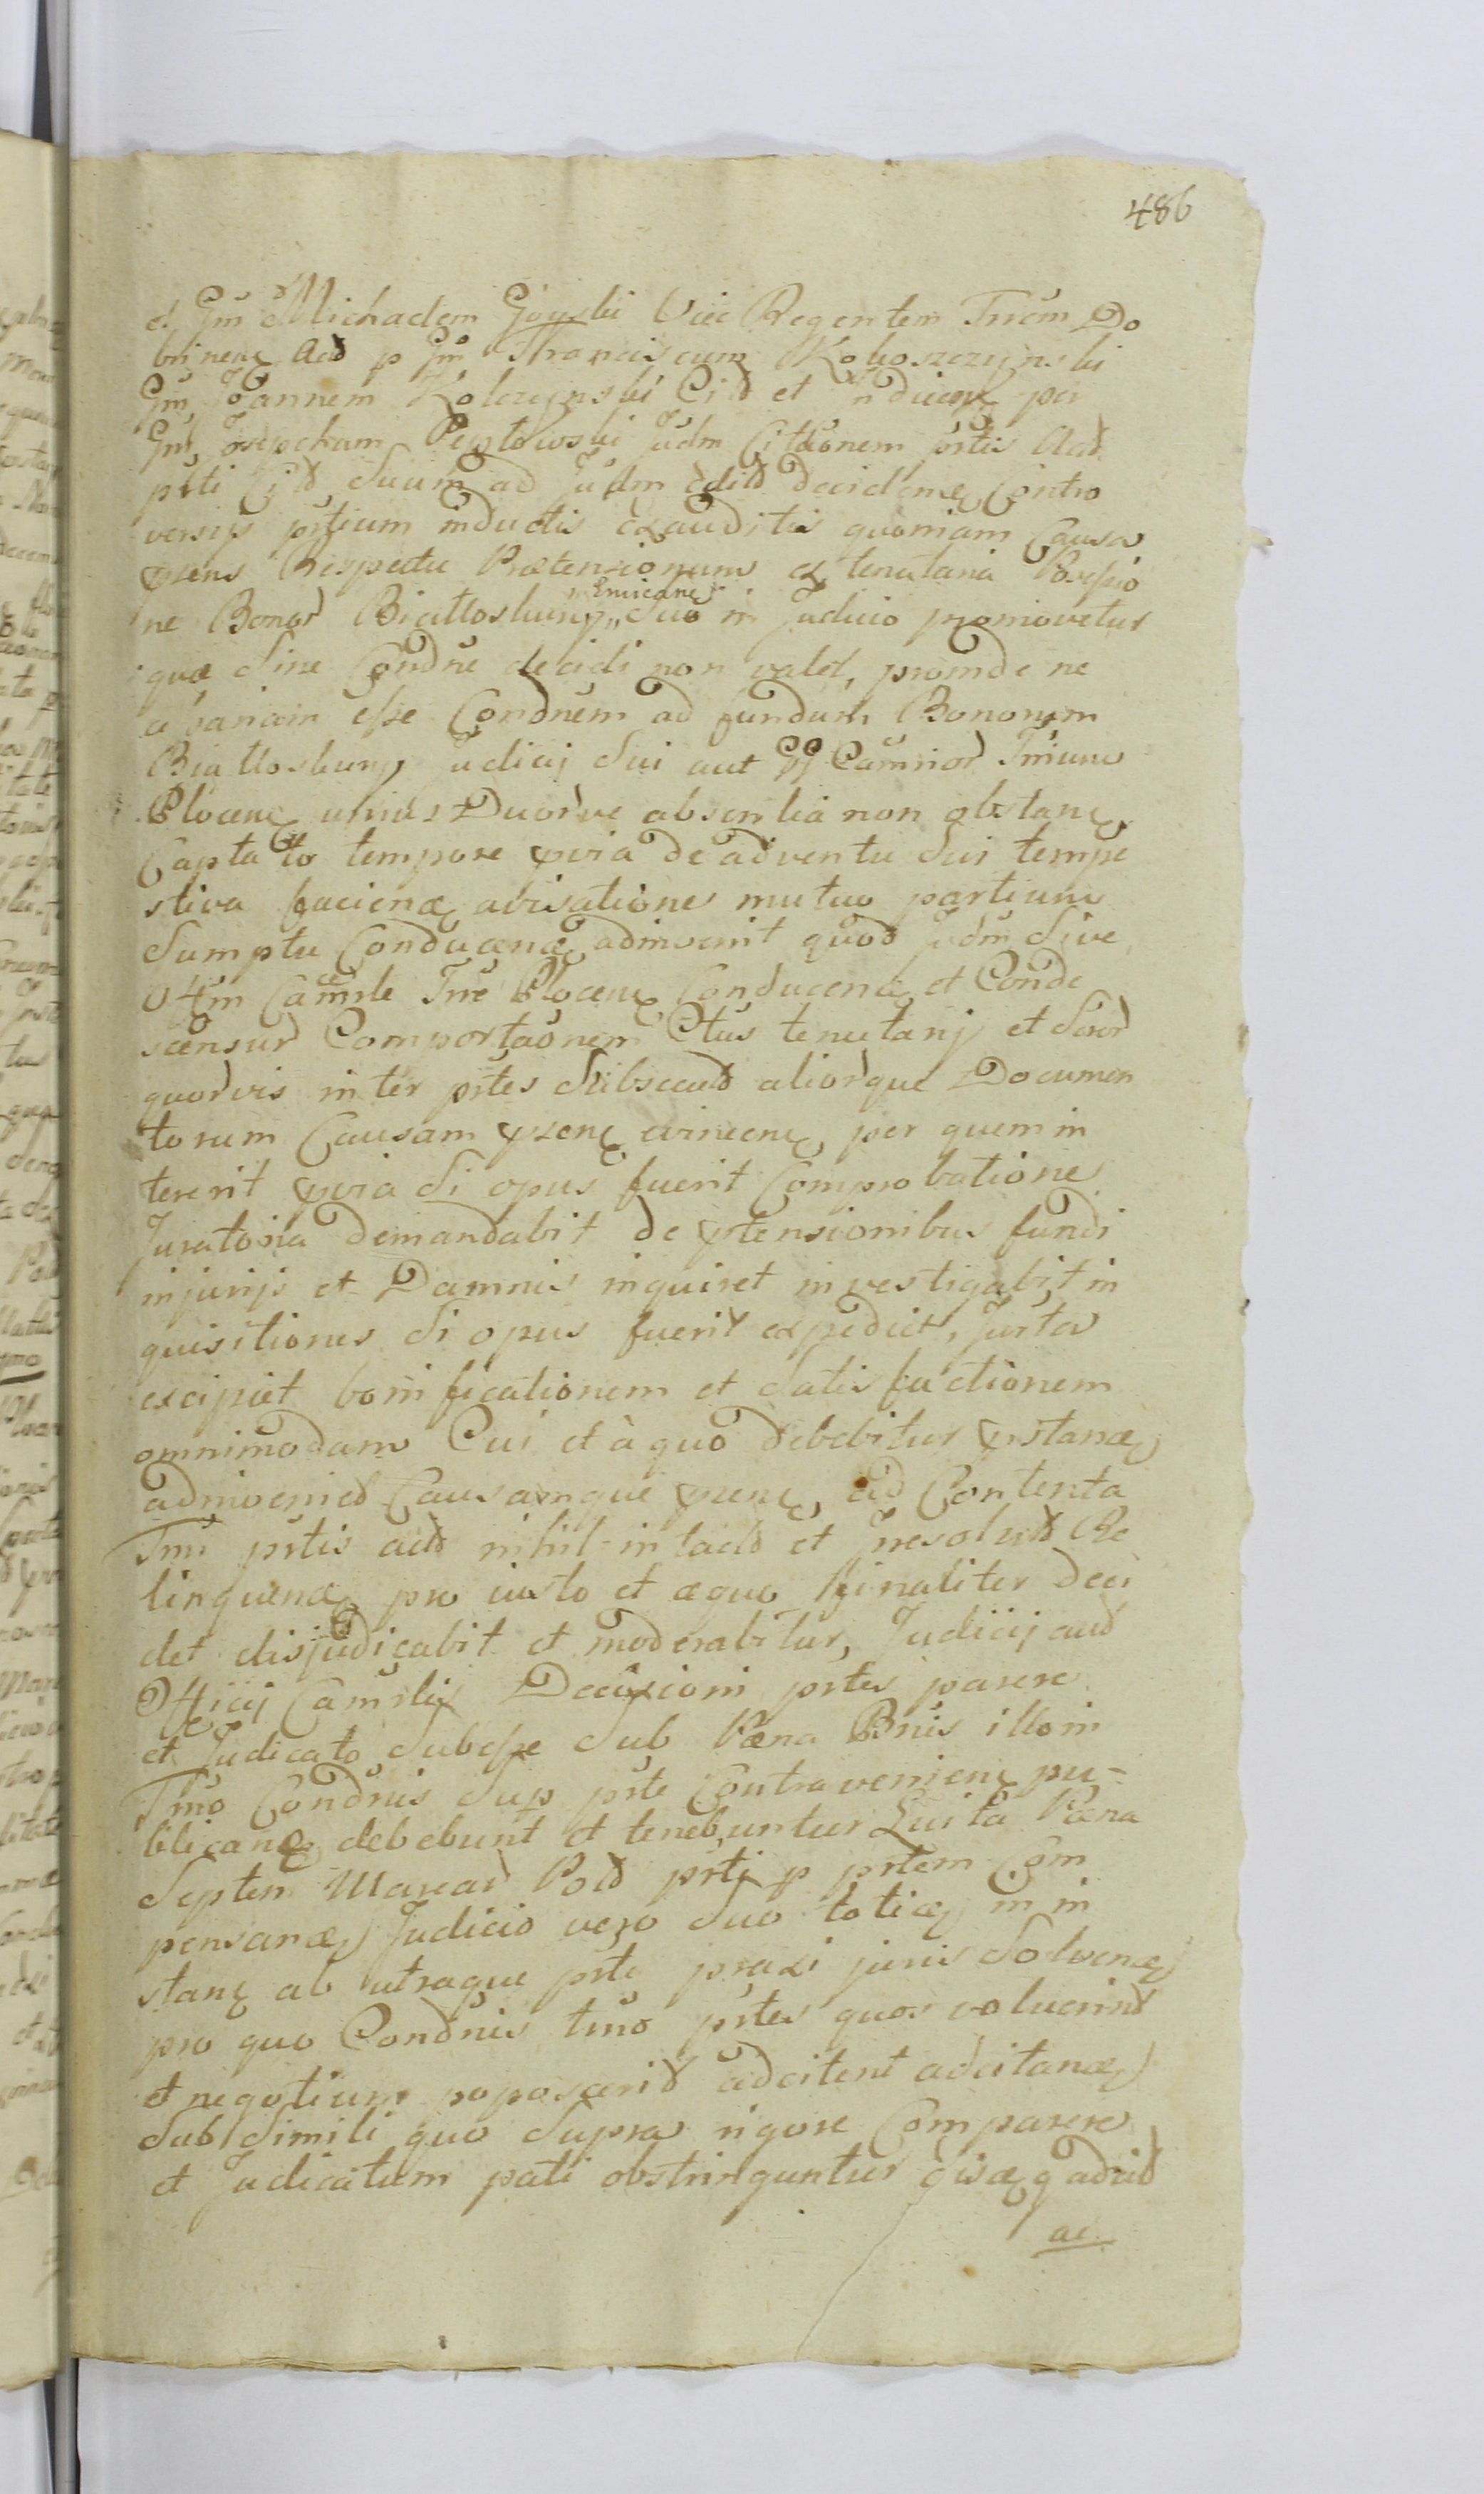 486
et Gm Michaelem Góyski Vice Regentem Trrem Do
brinen Act p Gm Franciscum Koboszczynski
Gm Joannem Kolczynski Cit et per
Gm Josephum Pegłowski Judm Citaonem prtis Act
prti Cit Suum ad Judm decidem Contro
versijs prtium inductis exauditis quoniam Causa
prsens Respectu Prætensionum ex tenutaria Possessio
ne Bonor Białłoskury Emicane Suo in Judicio promovetur
quæ Sine Condne decidi non valet, proinde ne
cessariam esse Condnem ad fundum Bonorum
Białłoskury Judicij Sui aut Camrior Trrium
Plocen unius Duorve absentia non obstan
Captato tempore prvia de adventu Sui tempe
stiva faciena avisatione mutuo partium
Sumptu Conducena adinvenit quod Judm Sive
Offm Camrle Trre Plocen Conducena et Conde
scensur Comportaonem Ctus tenutarij et Suor
quorvis inter prtes Subsecut aliorque Documen
torum Causam prsen evincen, per quem in
tererit prvia Si opus fuerit Comprobatione
Juratoria demandabit de prtensionibus fundi
injurijs et Damnis inquiret investigabit in
quisitiones Si opus fuerit expediet, Jurta
excipiet bonificationem et Satisfactionem
omnimodam Cui et à quo debebitur prstana
adinveniet Causamque prsen, ad Contenta
Trmi prtis act nihil intact et Irresolut Re
linquena pro iusto et æquo finaliter deci
det disjudicabit et moderabitur, Judicij aut
Officij Camrlis Decisioni prtes parere
et Judicato Subesse Sub Pæna Bnis illo in
Trmo Condnis Sup prte Contravenien pu-
blicana debebunt et tenebuntur Luita Pæna
Septem Marcar Pol prti p prtem Com
pensana Judicio vero Suo toties in in
stan ab utraque prte praxi juris Solvena
pro quo Condnis trno prtes quos voluerint
et negotium poposcerit adcitent adcitana
Sub Simili quo Supra rigore Comparere
et Judicatum pati obstringuntur adcit
ac